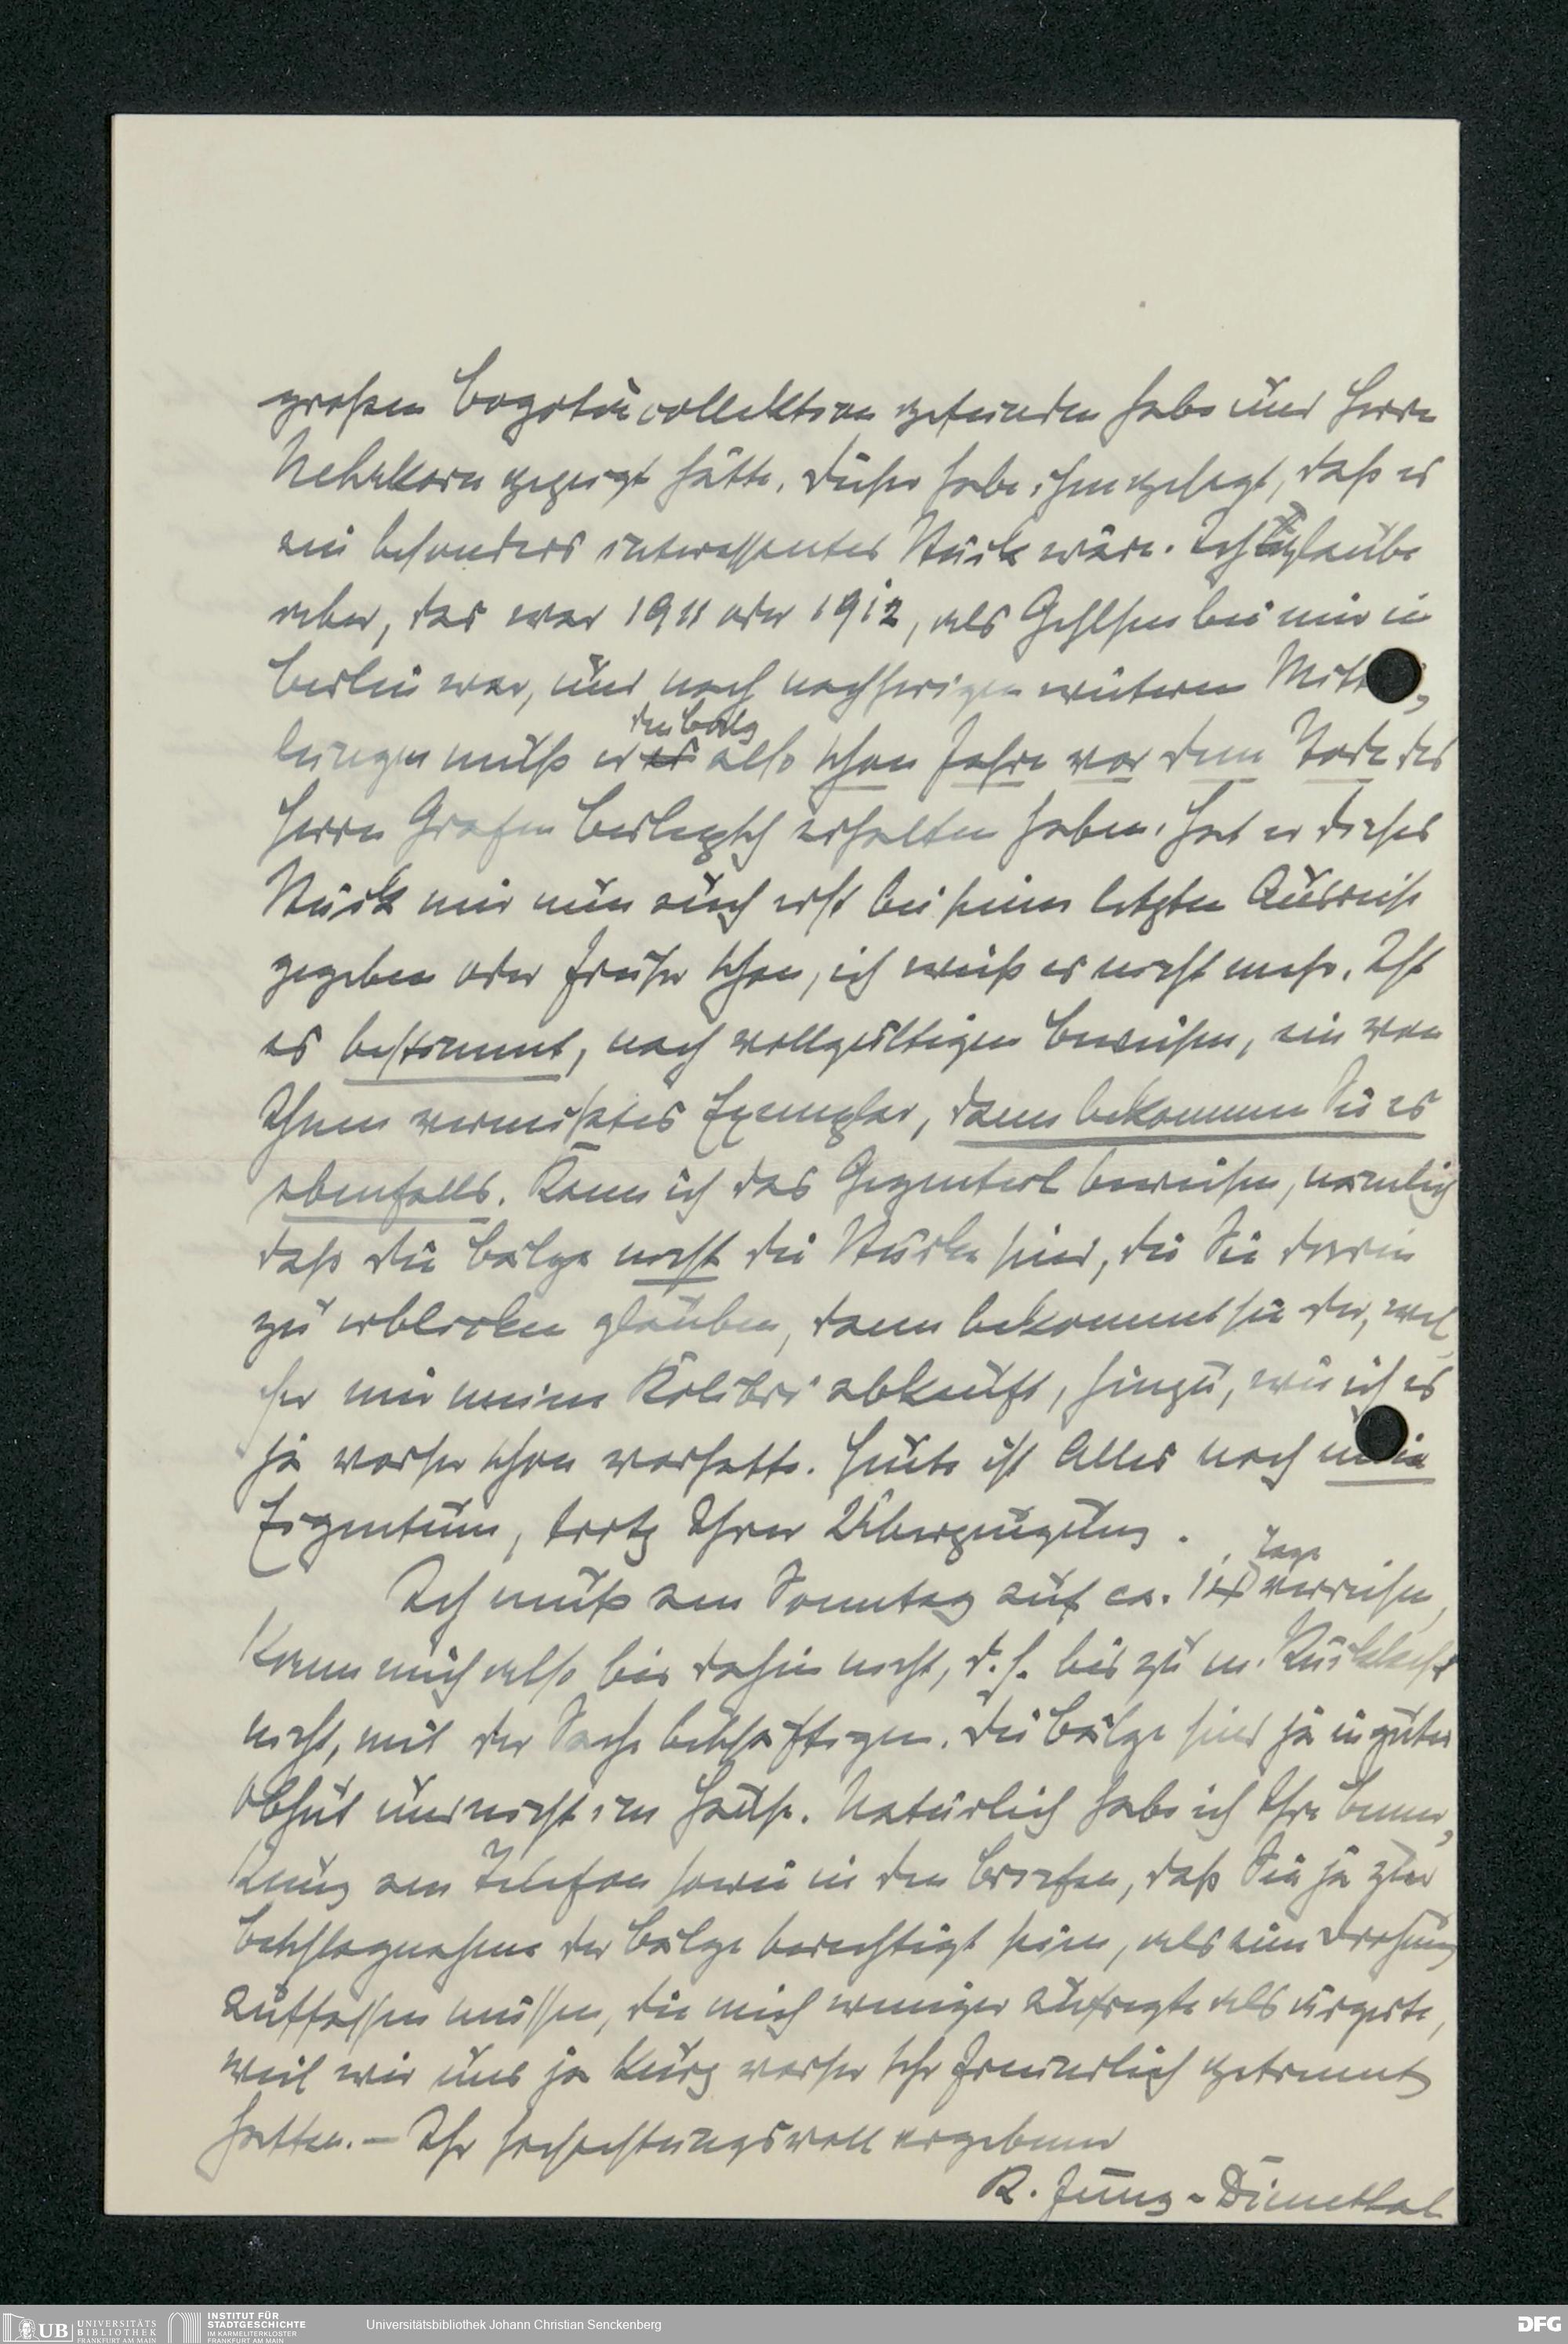 großen Bogotácollektion gefunden habe und Herrn
Nehrkorn gezeigt hätte. Dieser habe ihm gesagt, daß es
ein besonders interessantes Stück wäre. Ich glaube
aber, das war 1911 oder 1912, als Gehlsen bei mir in
Berlin war, und nach nachherigen weiteren Mitt
den Balg
lungen muß er es also schon Jahre vor dem Tode des
Herrn Grafen Berlepsch erhalten haben. Hat er dieses
Stück mir nun auch erst bei seiner letzten Ausreise
gegeben oder früher schon, ich weiß es nicht mehr. Ist
es bestimmt, nach vollgültigen Beweisen, ein von
Ihnen vermißtes Exemplar, dann bekommen Sie es
ebenfalls. Kann ich das Gegenteil beweisen, nämlich
daß die Bälge nicht die Stücke sind, die Sie darin
zu erblicken glauben, dann bekommt sie der, wel,
cher mir meine Kolibri abkauft, hinzu, wie ich es
ja vorher schon vorhatte. Heute ist Alles noch mein
Eigentum, trotz Ihrer Überzeugung.
Tage
Ich muß am Sonntag auf ca. 14 verreisen,
kann mich also bis dahin nicht, d.h. bis zu m. Rückkehr
nicht, mit der Sache beschäftigen. Die Bälge sind ja in guter
Obhut und nicht im Hause. Natürlich habe ich Ihre Bemer,
kung am Telefon sowie in den Briefen, daß Sie ja zur
Beschlagnahme der Bälge berechtigt seien, als eine Drohung
auffassen müssen, die mich weniger aufregte als ärgerte,
weil wir uns ja kurz vorher sehr freundlich getrennt
hatten. – Ihr hochachtungsvoll ergebener
R. Jung-Dünnthal
UB UNIVERSITÄTS
BIBLIOTHEK
FRANKFURT AM MAIN
INSTITUT FÜR
STADTGESCHICHTE
IM KARMELITERKLOSTER
FRANKFURT AM MAIN
Universitätsbibliothek Johann Christian Senckenberg
DFG